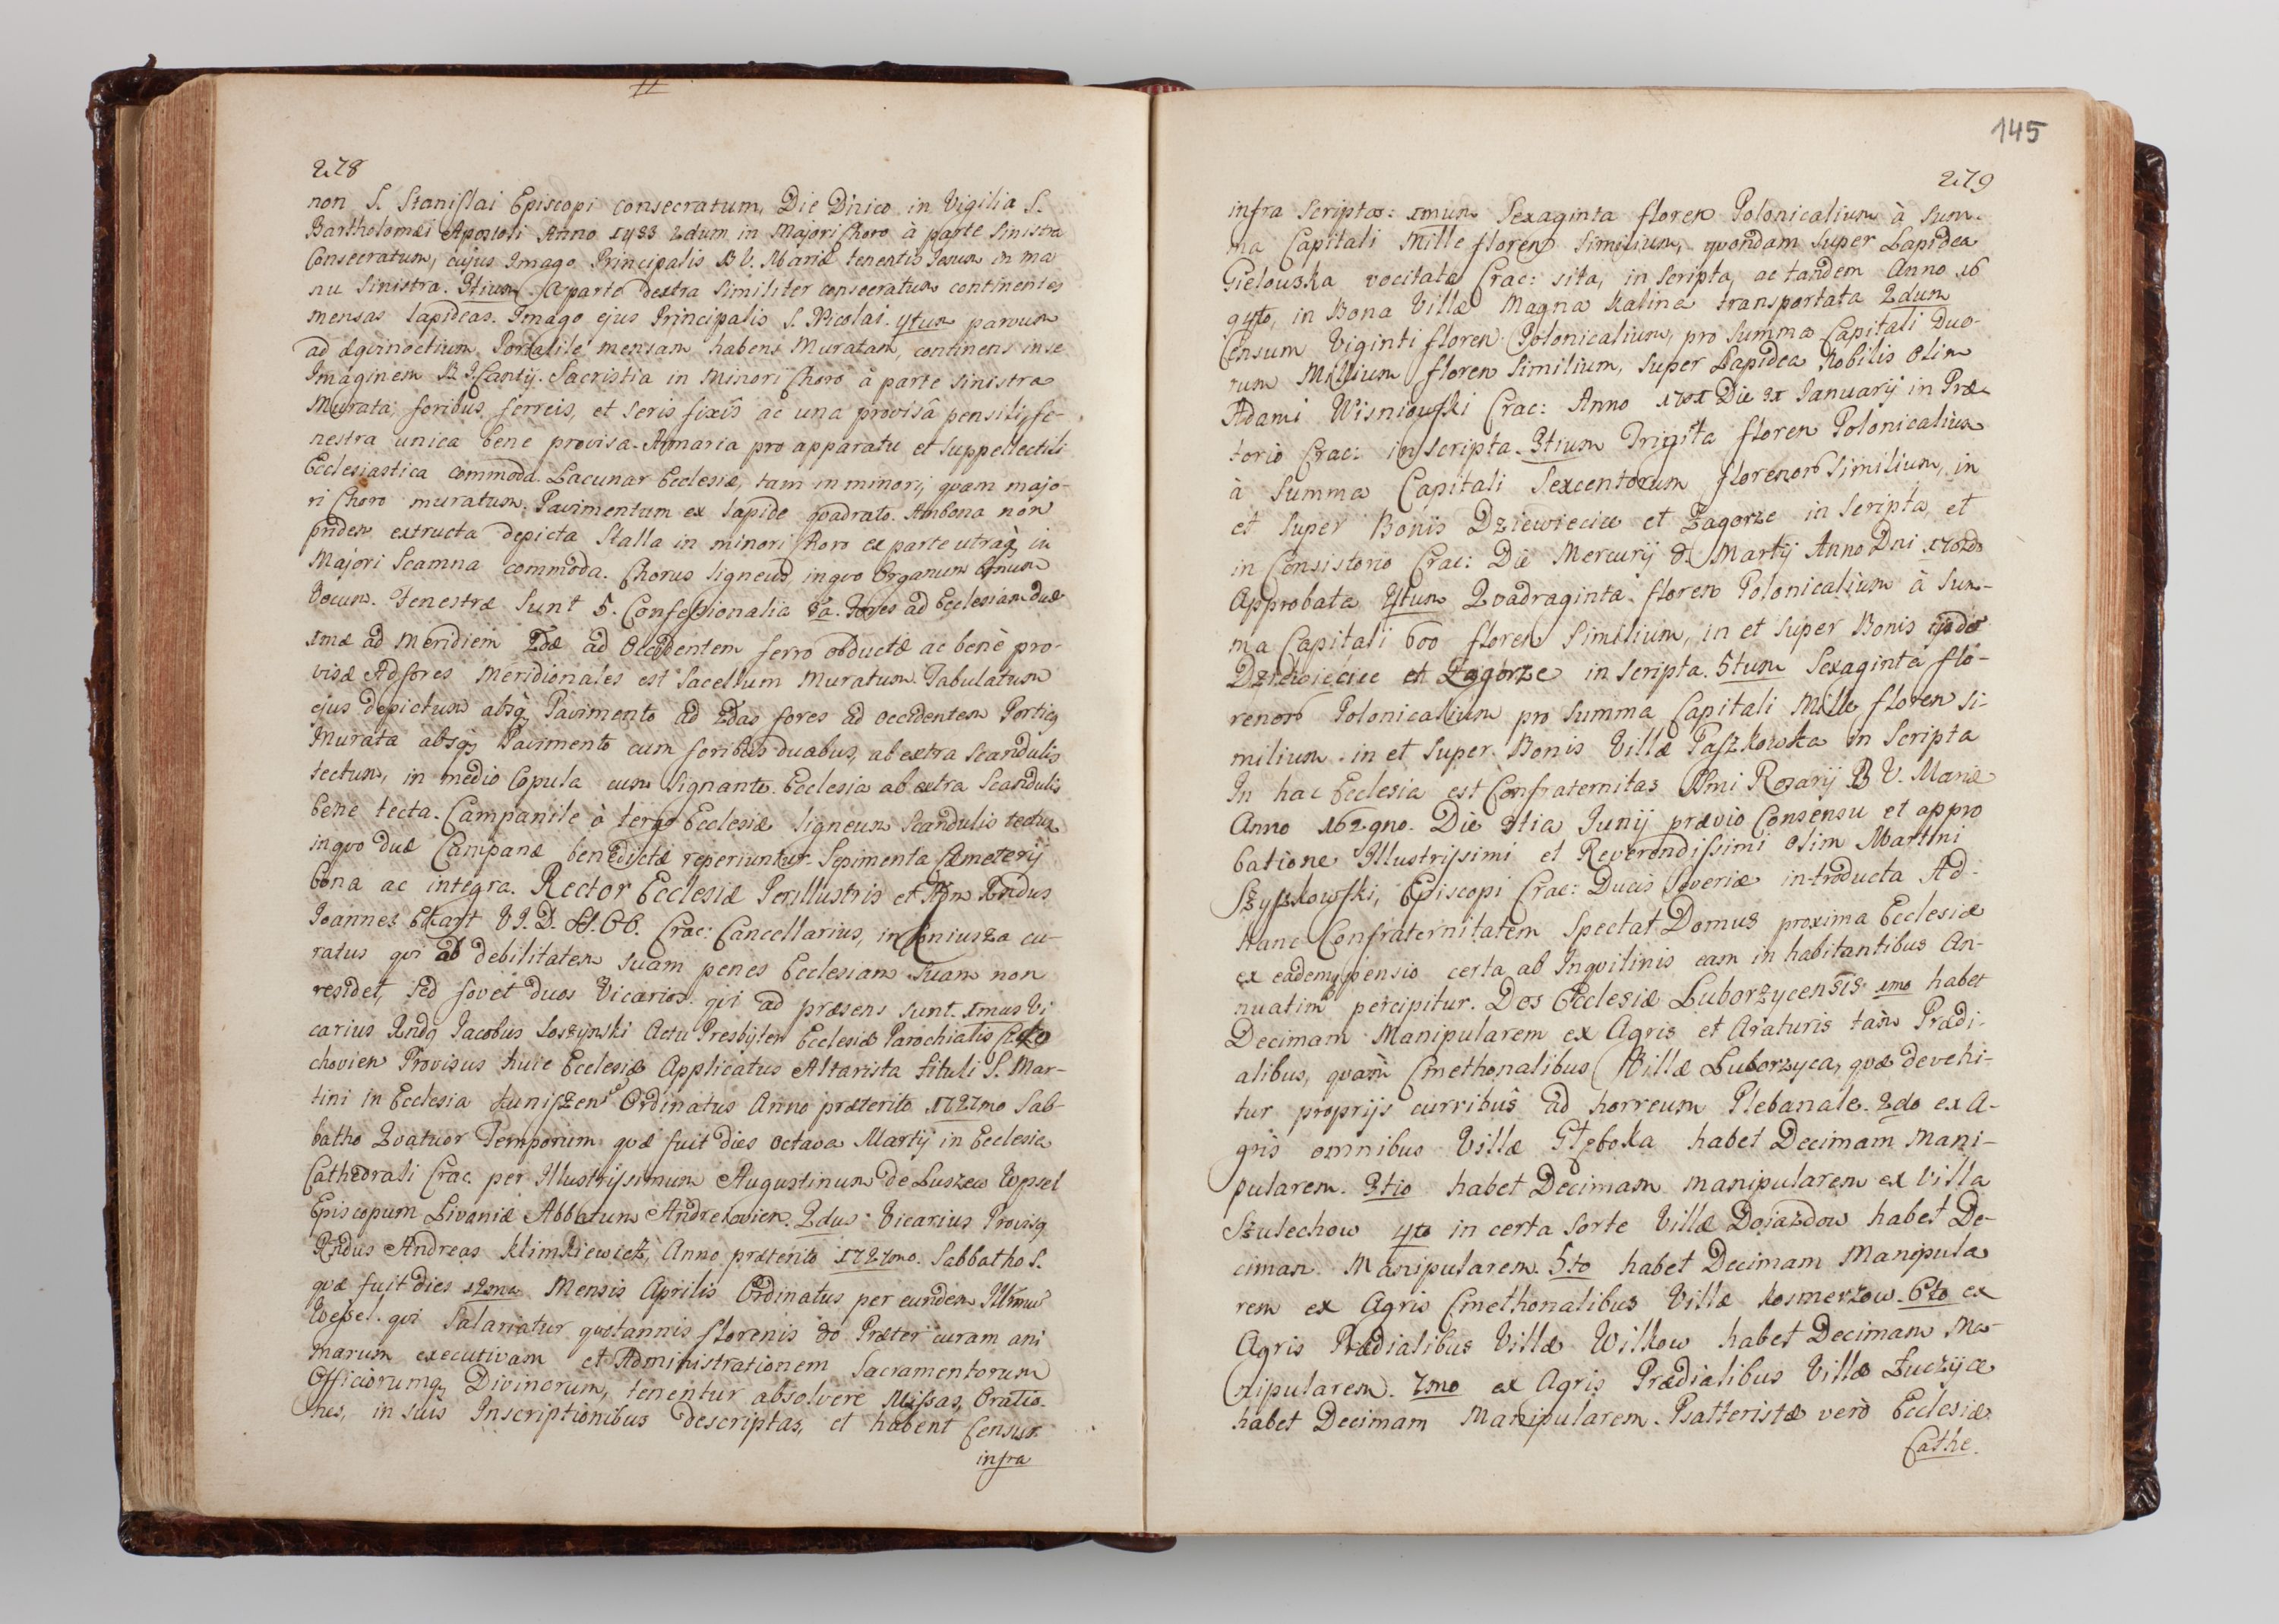 278
non S. Stanislai Episcopi consecratum, Die Dnico in Vigilia S.
Bartholomæi Apostoli Anno 1433 2dum in Majori Choro à parte Sinistra
Consecratum, cujus Imago Principalis B V. Mariæ tenentis Jesum in ma
nu Sinistra. 3tium A parte dextra Similiter consecratum continentes
mensas lapideas. Imago ejus Principalis S. Nicolai. 4tum parvum
ad æqvinoctium Portatile mensam habens Muratam, continens in se
Imaginem B. J. Cantij. Sacristia in Minori Choro à parte sinistra
Murata, foribus ferreis, et seris fixîs ac una provisâ pensili, fe-
nestra unica bene provisa. Armaria pro apparatu et suppellectili
Ecclesiastica commoda. Lacunar Ecclesiæ, tam in minori, qvam majo-
ri Choro muratum. Pavimentum ex lapide qvadrato. Ambona non
pridem extructa depicta Stalla in minori Choro ex parte utraq, in
Majori Scamna commoda. Chorus ligneus, in qvo Organum
Vocum. Fenestræ sunt 5. Confessionalia Fores ad Ecclesiam duæ
1mæ ad Meridiem 2dæ ad Occidentem ferro obductæ ac benè pro-
visæ Ad fores Meridionales est Sacellum Muratum. Tabulatum
ejus depictum absq, Pavimento ad 2das fores ad occidentem Portic9
Murata absq, Pavimento cum foribus duabus, ab extra scandulis
tectum, in medio Copula cum signante. Ecclesia ab extra Scandulis
bene tecta. Campanile à tergo Ecclesiæ ligneum Scandulis tectum
in qvo duæ Campanæ benedictæ reperiuntur. Sepimenta Cæmeterij
bona ac integra. Rector Ecclesiæ Perillustris et Rdus
Joannes Ekart V J. D. Crac: Cancellarius, in Koniusza cu-
ratus qvi ob debilitatem suam penes Ecclesiam suam non
residet, sed fovet duos Vicarios. qvi ad præsens sunt. 1mus Vi
carius Rnd9 Jacobus Loszynski Actu Presbyter Ecclesiæ Parochialis
chovien Provisus huic Ecclesiæ Applicatus Altarista tituli S. Mar-
tini in Ecclesia Ordinatus Anno præterito 1727mo Sab-
batho Qvatuor Temporum qvæ fuit dies octava Martij in Ecclesia
Cathedrali Crac. per Illustrissimum Augustinum de Luszew Wessel
Episcopum Livoniæ Abbatum Andreovien. 2dus Vicarius Provis9
Rndus Andreas Klimkiewicz, Anno præterito 1727mo. Sabbatho S.
qvæ fuit dies 12ma Mensis Aprilis Ordinatus per eundem Illmum
Wessel. qvi Salariatur qvotannis florenis 80 Præter curam ani
marum executivam et Administrationem Sacramentorum
Officiorumq, Divinorum, tenentur absolvere Missas, Oratio-
nes, in suis Inscriptionibus descriptas, et habent Censum
infra
145
279
infra Scriptos: 1mum Sexaginta floren Polonicalium à Sum-
ma Capitali Mille floren Similium, qvondam super Lapidea
Gielowska vocitata Crac: sita, in scripta, ac tandem Anno 16
94to, in Bona Villæ Magna Kalina transportata 2dum
Censum Viginti floren Polonicalium, pro Summa Capitali Duo-
rum Millium floren Similium, super Lapidea Nobilis Olim
Adami Wisniowski Crac: Anno 1701 Die 31 Januarij in Præ
torio Crac: in scripta. 3tium Triginta floren Polonicalium
à Summa Capitali Sexcentorum florenor Similium, in
et super Bonis Dziewiecice et Zagorze in scripta, et
in Consistorio Crac: Die Mercurij 8 Martij Anno Dni 1702do
Approbata 4tum Qvadraginta floren Polonicalium à Sum-
ma Capitali 600 floren Similium, in et super Bonis ijsde
Dziewiecice et Zagorze in scripta. 5tum Sexaginta flo-
renor Polonicalium pro Summa Capitali Mille floren si-
milium in et super Bonis Villæ Paszkowka in Scripta
In hac Ecclesia est Confraternitas SSmi Rosarij B V. Mariæ
Anno 1629no. Die 3tia Junij prævio Consensu et appro
batione Illustrissimi et Reverendissimi olim Martini
Szyszkowski, Episcopi Crac: Ducis Severiæ introducta Ad-
hanc Confraternitatem Spectat Domus proxima Ecclesiæ
ex eademq, pensio certa ab Inqvilinis eam in habitantibus An-
nuatim percipitur. Dos Ecclesiæ Luborzycensis 1mo habet
Decimam Manipularem ex Agris et Araturis tam Prædi-
alibus, qvàm Cmethonalibus Villæ Luborzyca, qvæ devehi-
tur proprijs curribus ad horreum Plebanale. 2do ex A-
gris omnibus Villæ Głęboka habet Decimam Mani-
pularem. 3tio habet Decimam manipularem ex Villa
Szulechow 4to in certa Sorte Villæ Dojazdow habet De-
cimam Manipularem. 5to habet Decimam Manipula
rem ex Agris Cmethonalibus Villæ Kosmerzow. 6to ex
Agris Prædialibus Villæ Wilkow habet Decimam Ma-
nipularem. 7mo ex Agris Prædialibus Villæ Łuczyce
habet Decimam Manipularem. Psalteristæ verò Ecclesiæ
Cathe.